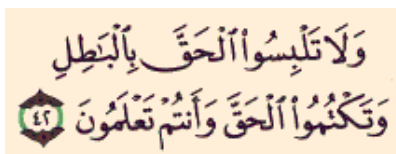 وَلَا تَلْبِسُوا۟ ٱلْحَقَّ بِٱلْبَٰطِلِ
وَتَكْتُمُوا۟ ٱلْحَقَّ وَأَنتُمْ تَعْلَمُونَ ٤٢